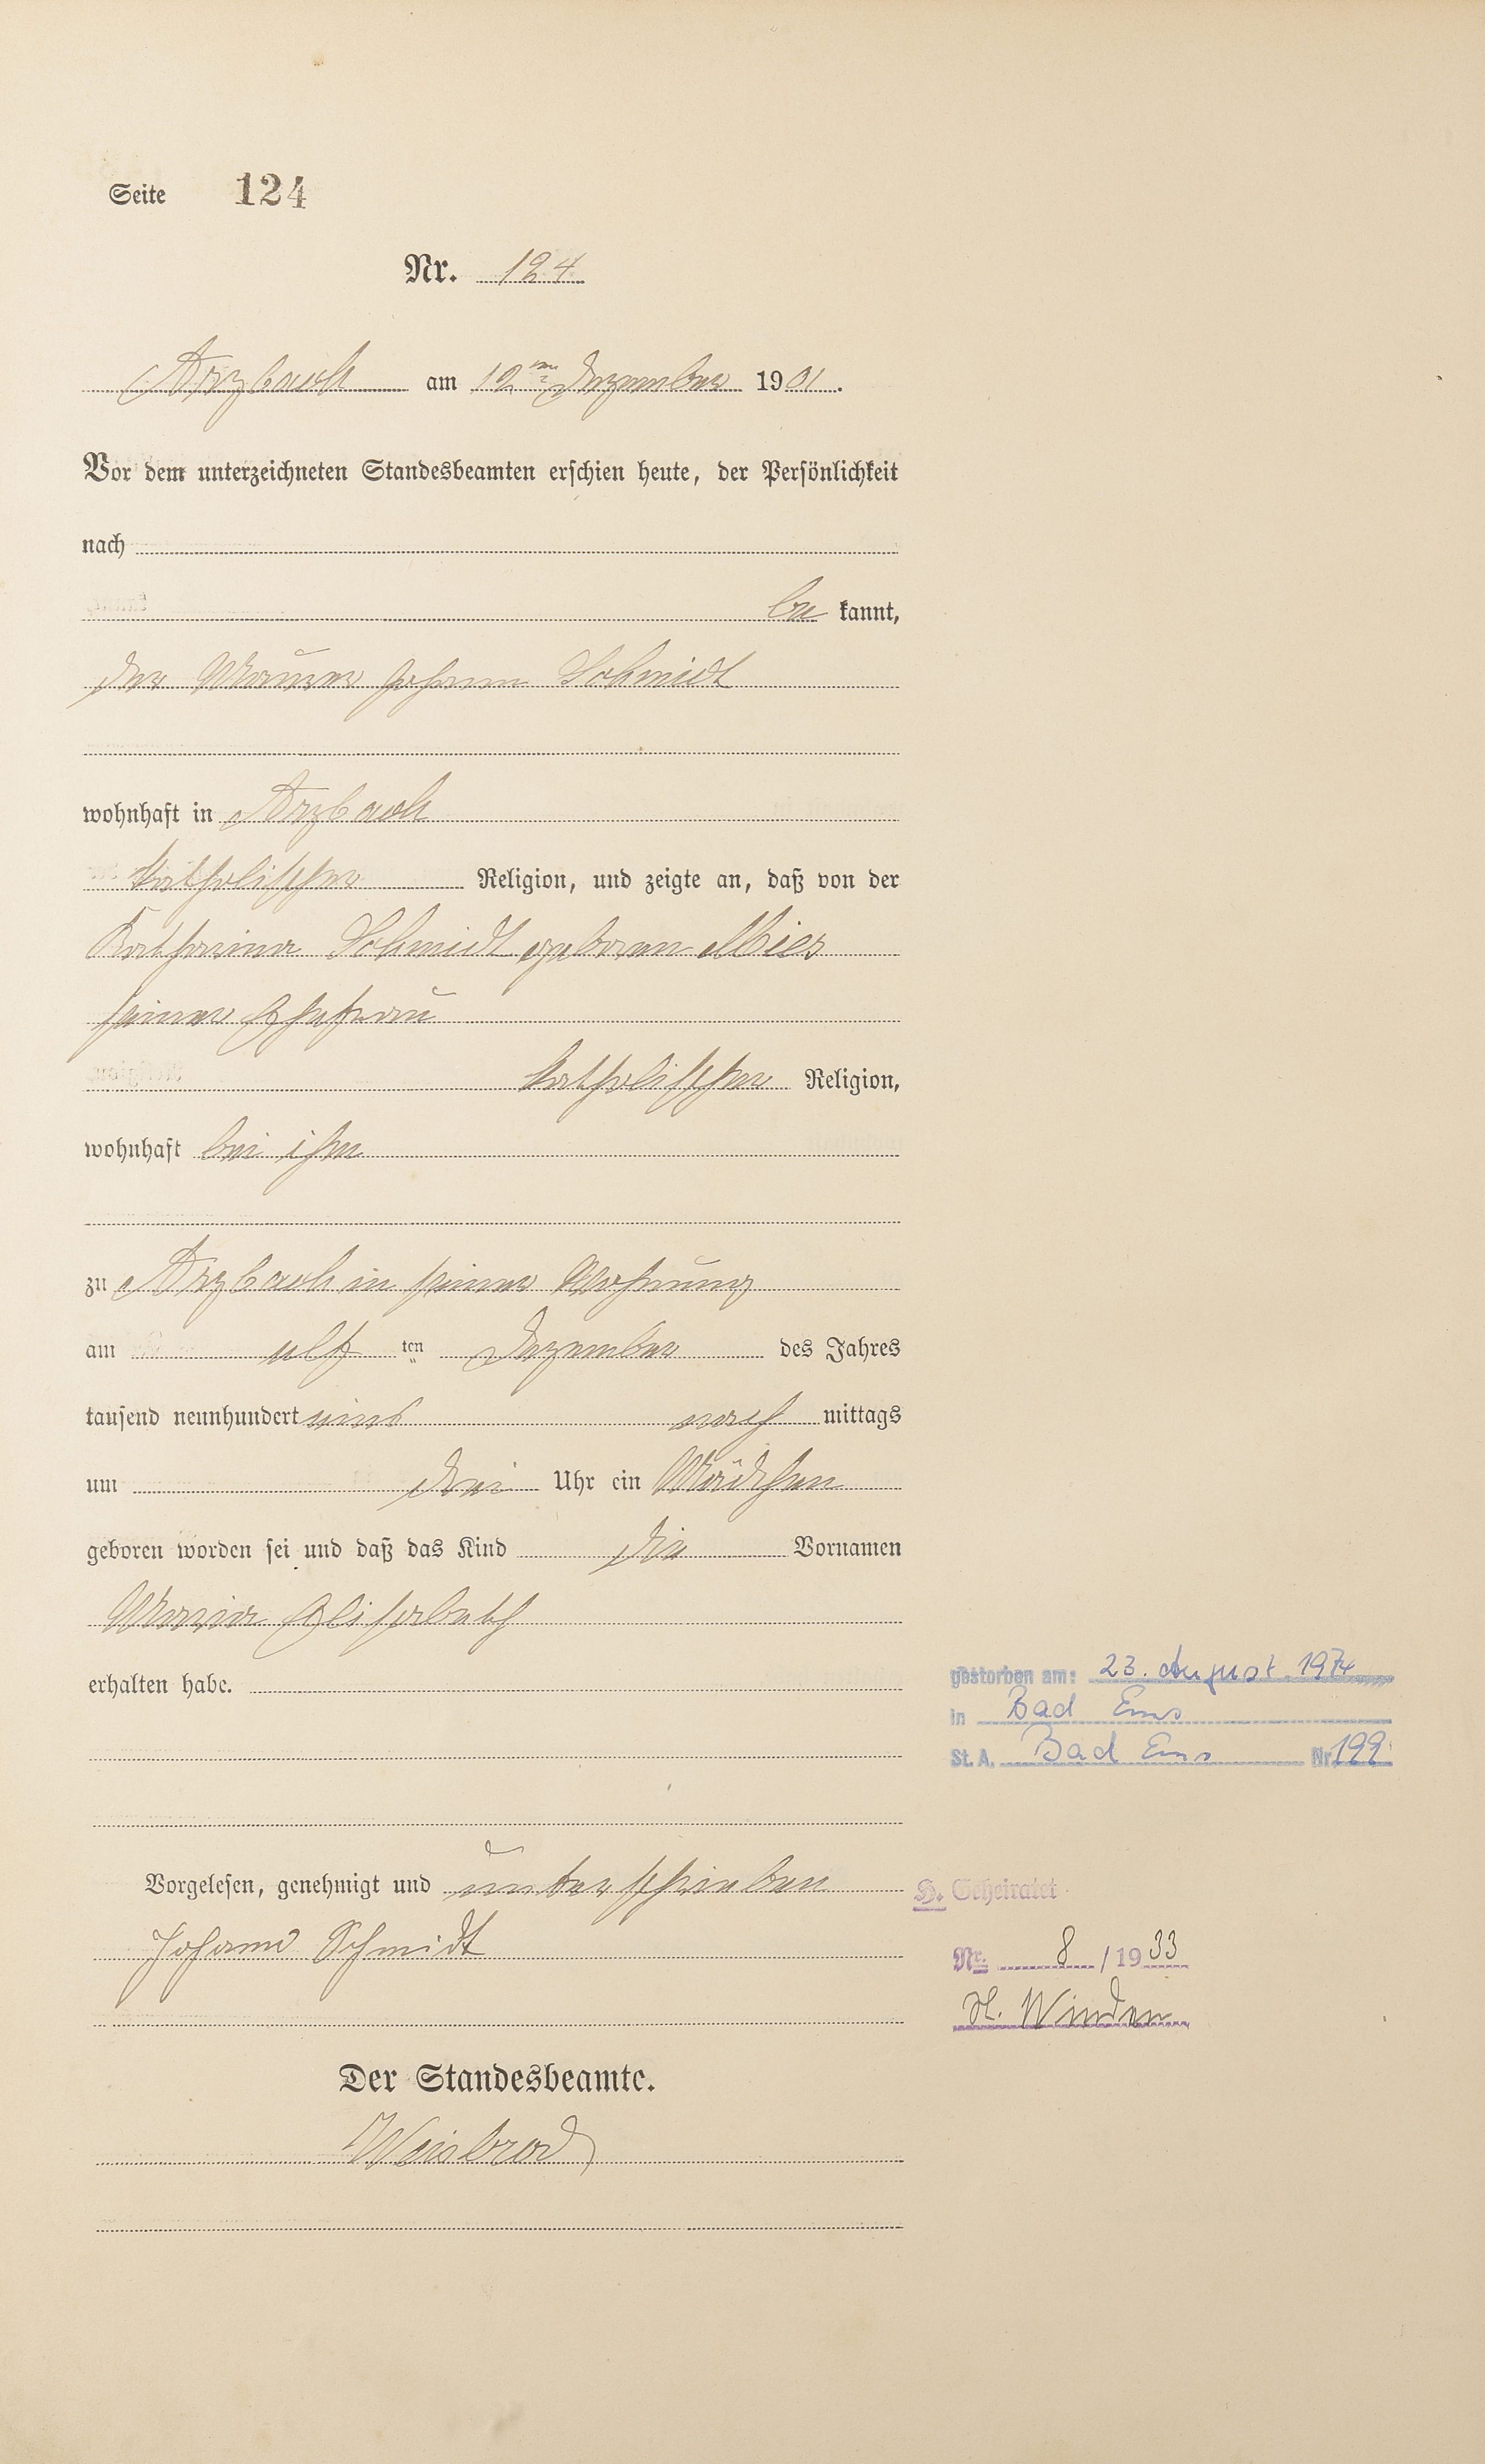 Seite 124
Nr. 124
Arzbach am 12ten Dezember 1901.
Vor dem unterzeichneten Standesbeamten erschien heute, der Persönlichkeit
nach
be kannt,
der Maurer Johann Schmidt
wohnhaft in Arzbach
katholischer Religion, und zeigte an, daß von der
Katharina Schmidt geboren Mies
seiner Ehefrau
katholischer Religion,
wohnhaft bei ihm
zu Arzbach in seiner Wohnung
am elf ten Dezember des Jahres
tausend neunhundert eins nach mittags
um drei Uhr ein Mädchen
geboren worden sei und daß das Kind die Vornamen
Maria Elisabeth
erhalten habe.
gestorben am: 23. August 1974
in Bad Ems
St. A. Bad Ems Nr. 199
Vorgelesen, genehmigt und unterschrieben
Johann Schmidt
H. Geheiratet
Nr. 8 / 1933
St. Winden
Der Standesbeamte.
Weisbrod